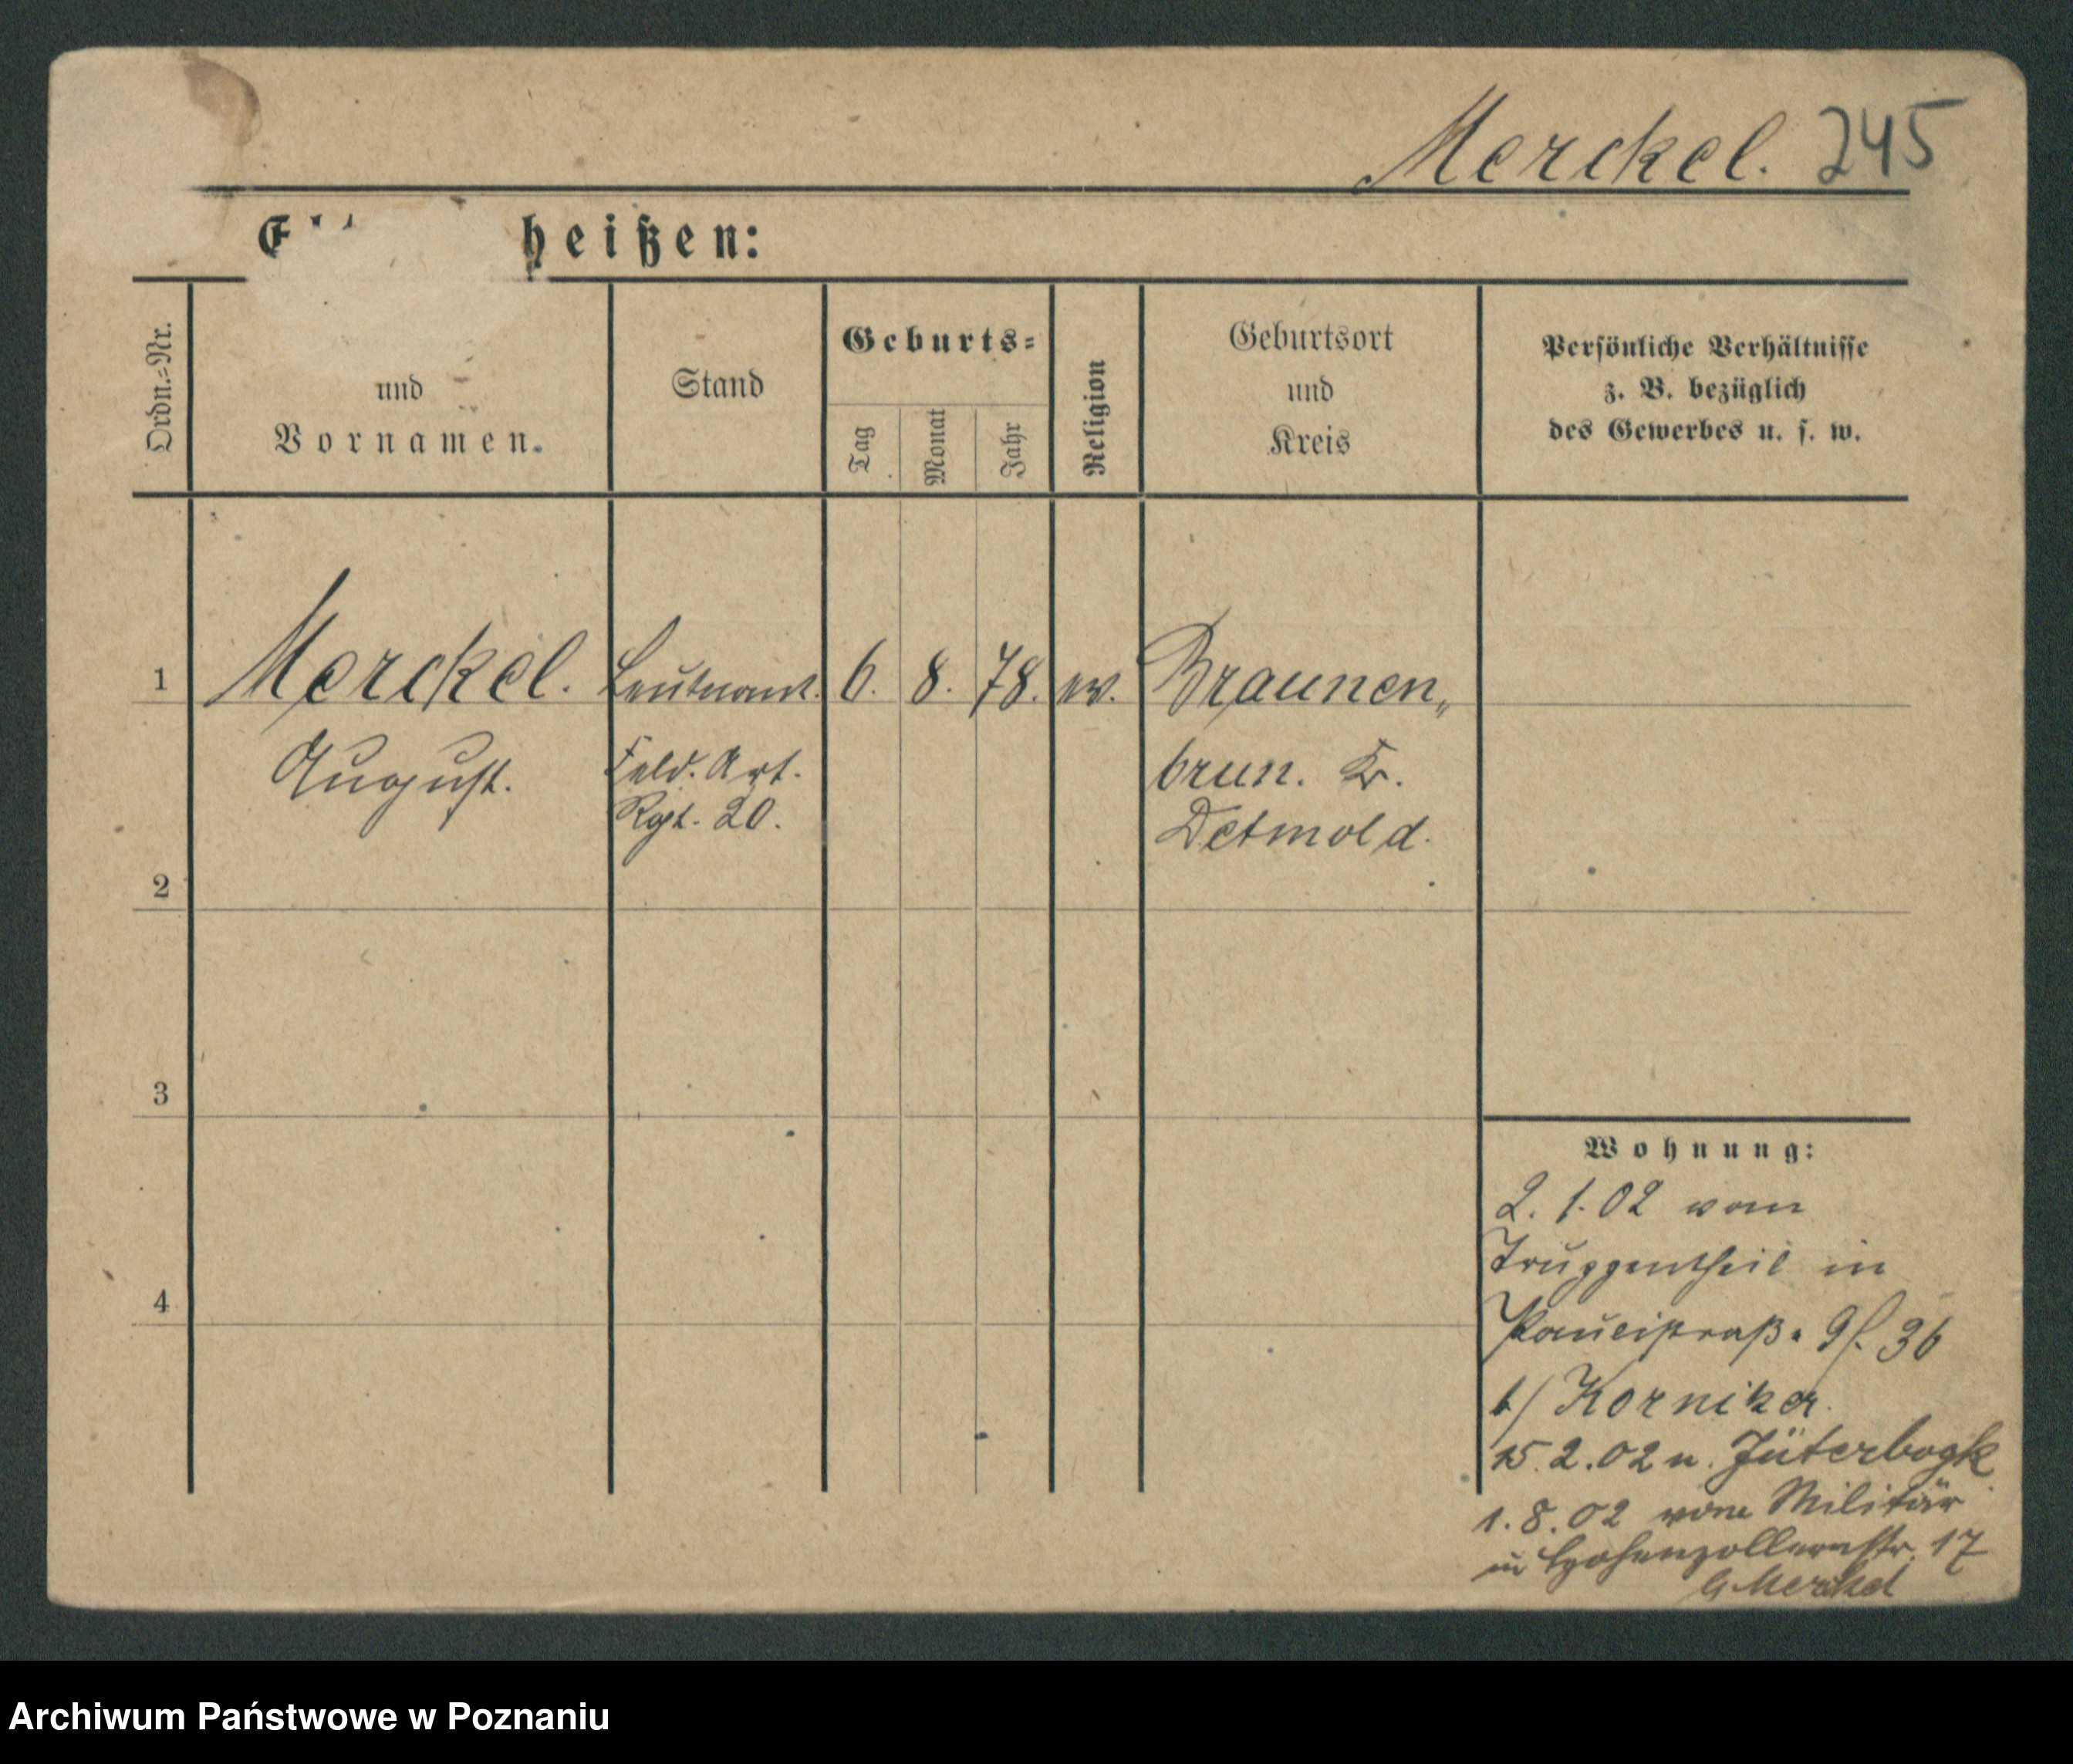 Merckel. 245
heißen:
Ordn.=Nr.
und
Vornamen.
Stand
Geburts=
Tag
Monat
Jahr
Religion
Geburtsort
und
Kreis
Persönliche Verhältnisse
z. B. bezüglich
des Gewerbes u. s. w.
1
Merckel.
August.
Leutnant.
Feld. Art.
Rgt. 20.
6. 8. 78. ev.
Braunen„
brun. Kr.
Detmold.
2
3
4
Wohnung:
2. 1. 02 vom
Truppentheil in
Paulistraße 36
b/ Korniker.
15. 2. 02 n. Jüterbogk
1. 8. 02 vom Militär
in Hohenzollernstr. 17
Merckel
Archiwum Państwowe w Poznaniu